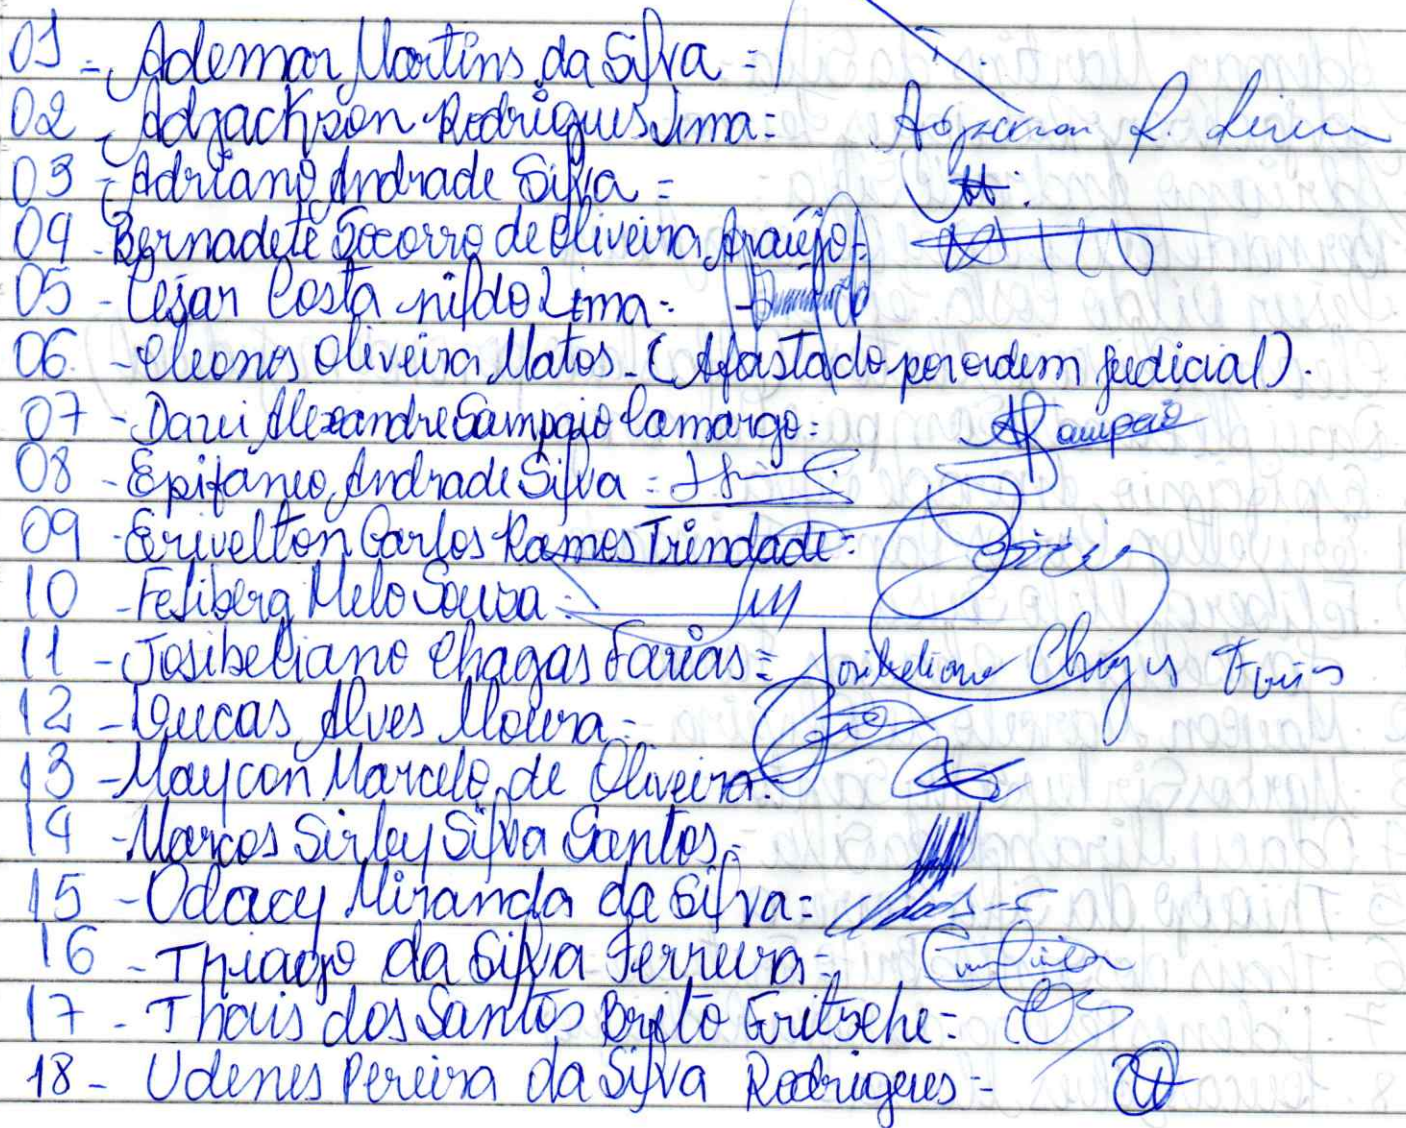 01 - Ademar Martins da Silva =
02 - Adjackson Rodrigues Lima = Adjackson R. Lima
03 - Adriano Andrade Silva =
04 - Bernadete Socorro de Oliveira Araújo =
05 - César Costa nildo Lima =
06 - Cleones Oliveira Matos - (Afastado por ordem judicial).
07 - Davi Alexandre Sampaio Camargo = Sampaio
08 - Epifaneo Andrade Silva =
09 - Erivelton Carlos Ramos Trindade =
10 - Feliberg Melo Souza =
11 - Josibeliano Chagas Farias = Josibeliano Chagas Farias
12 - Lucas Alves Moura -
13 - Maycon Marcelo de Oliveira =
14 - Marcos Sirley Silva Santos -
15 - Odacy Miranda da Silva =
16 - Thiago da Silva Ferreira =
17 - Thais dos Santos Brito Fritzche =
18 - Udenes Pereira da Silva Rodrigues -